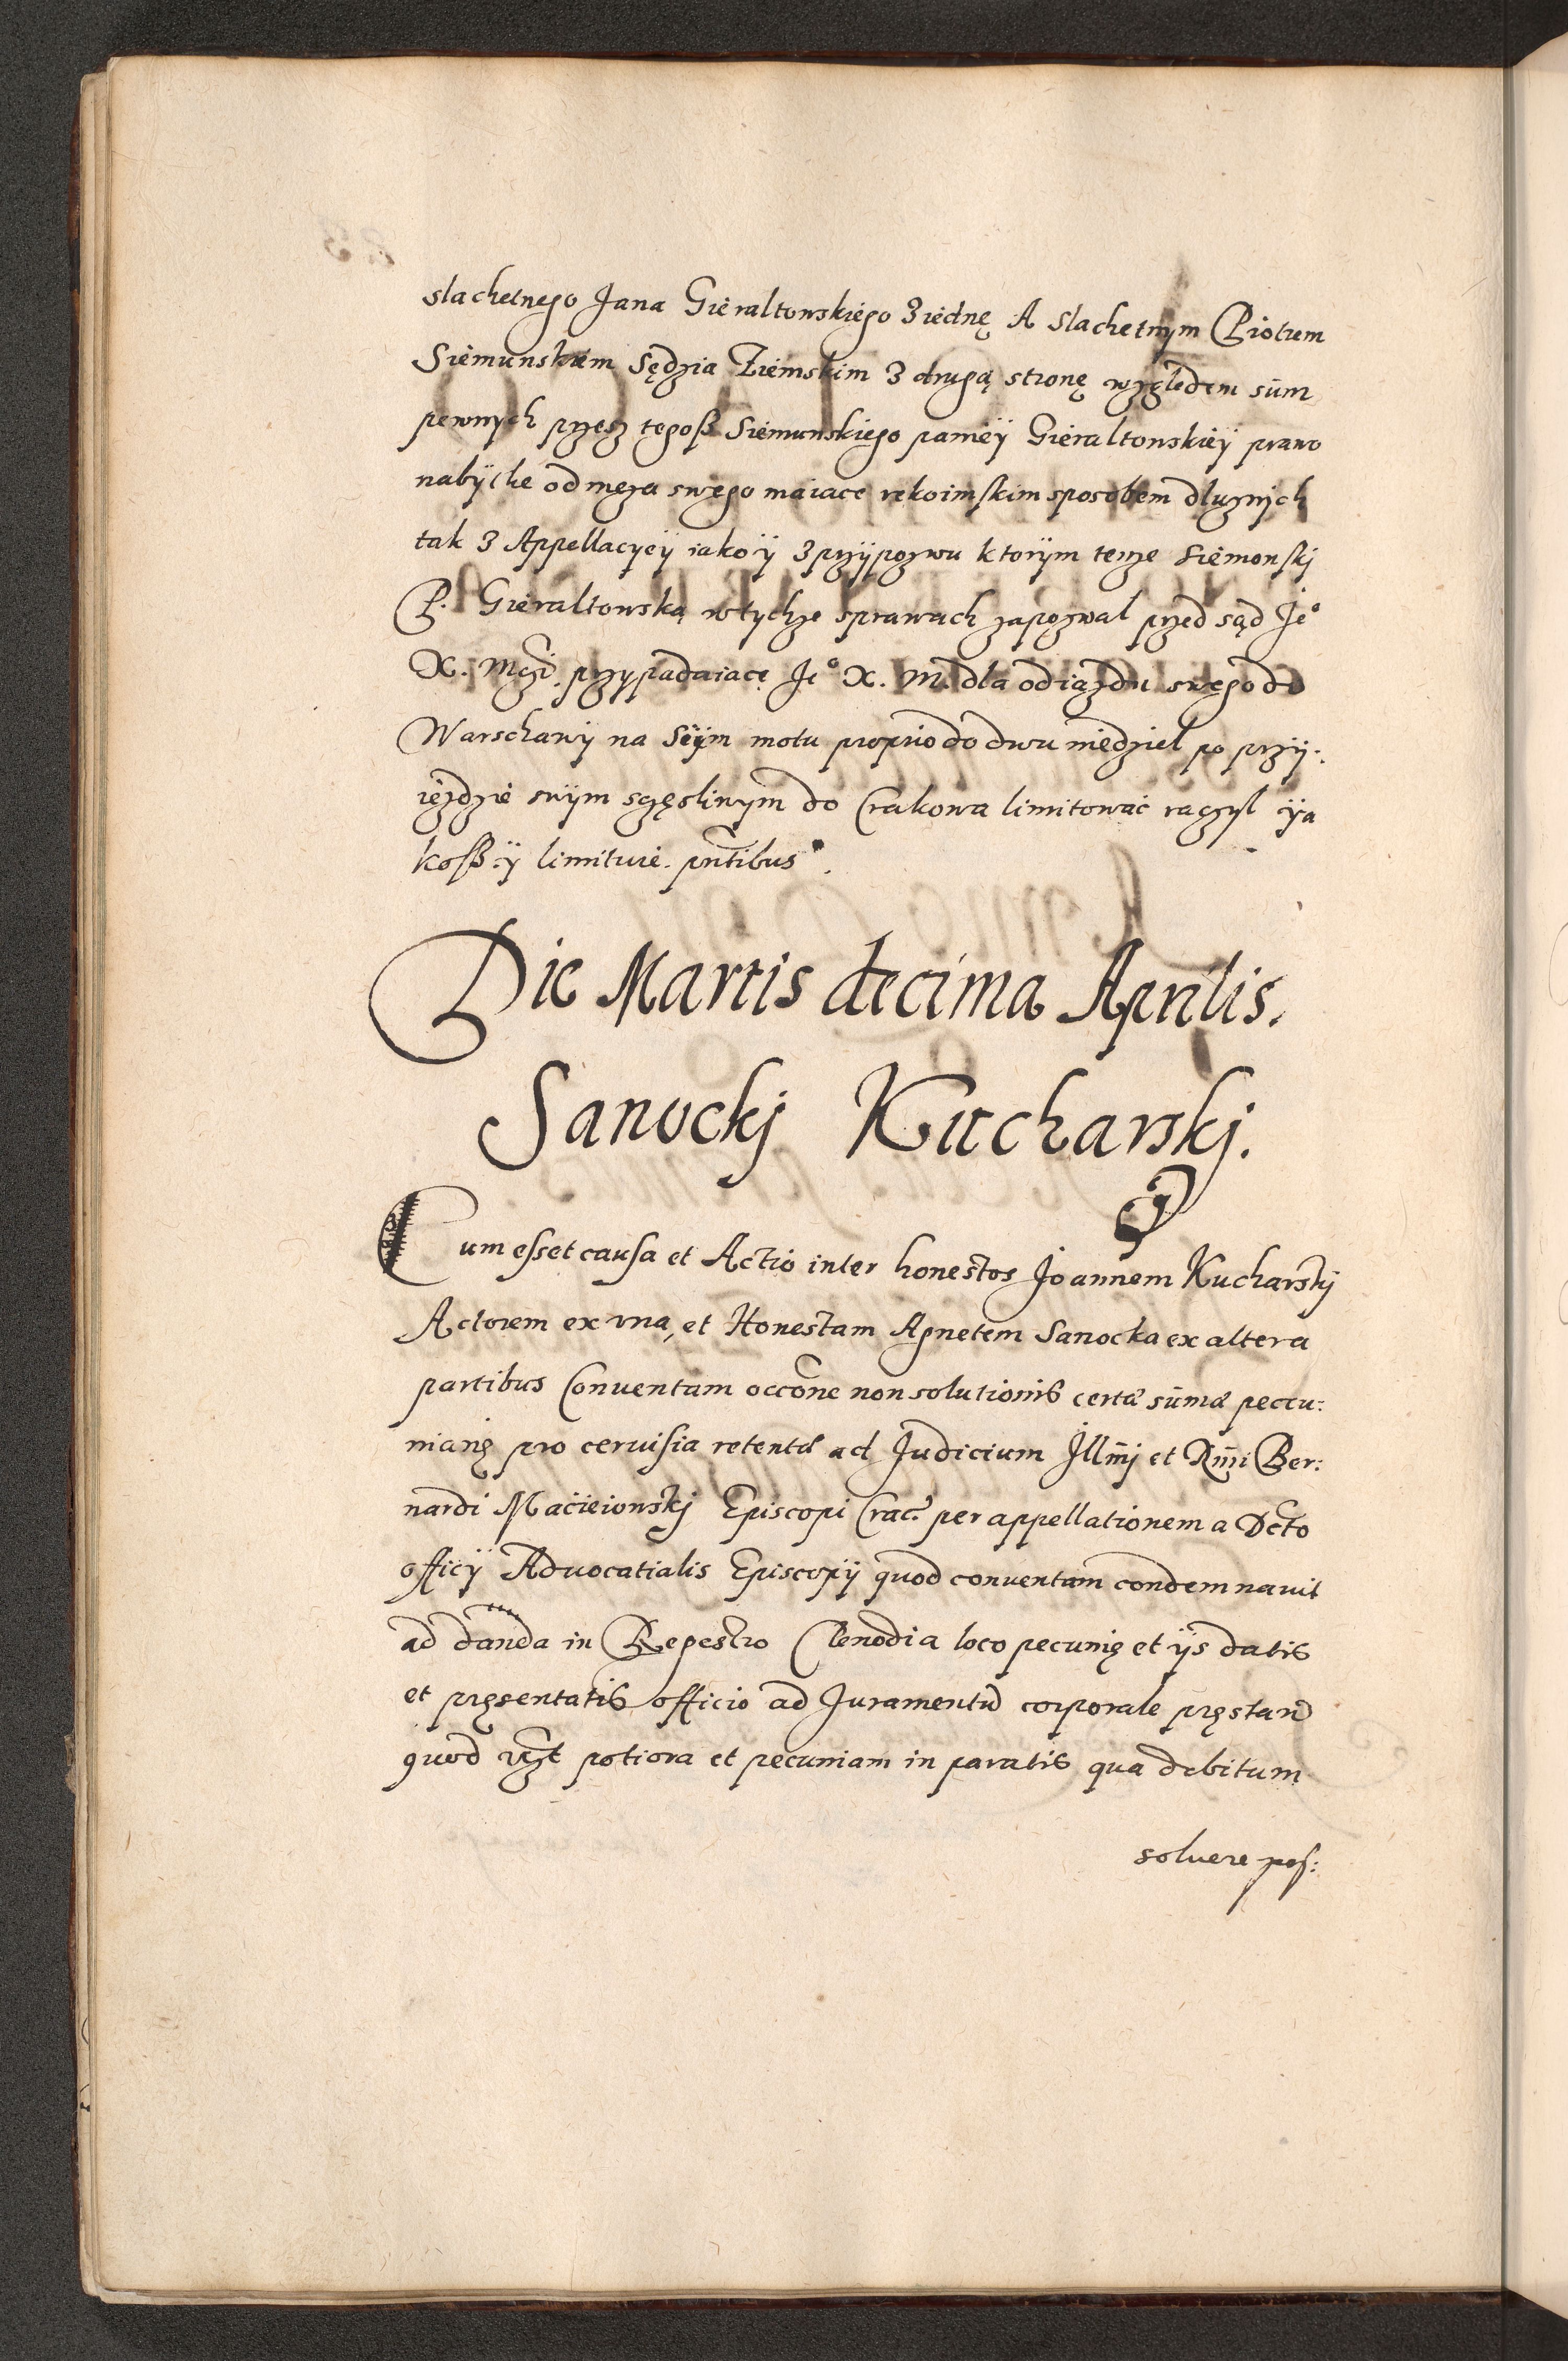 slachetnego Jana Gieraltowskiego z iednę A slachetnym Piotrem
Siemunskiem Sędzia Ziemskim z drugą stronę względem sūm
pewnych przesz tegosz Siemunskiego paniéÿ Gieraltowskiéÿ prawo
nabÿthe od męza swego maiace rekoimskim sposobem dluznÿch
tak z Appellacÿeÿ iako ÿ z przÿpozwu ktorÿm tenze Siemonskj
P. Gieraltowską w tychze sprawach zapozwal przed sąd Jeº
X. Mczi. przypadaiacę Jeº X. M. dla odiazdu swęgo do
Warschawÿ na Seÿm motu proprio do dwu niedziel po przÿ:
iezdzie swÿm sczęsliwym do Crakowa limitować raczyl ÿa
kosz ÿ limituie. pn̄tibus
Die Martis decima Aprilis.
Sanockj Kucharskj.
Cum esset causa et Actio inter honestos Joannem Kucharskj
Actorem ex vna, et Honestam Agnetem Sanocka ex altera
partibus Conuentam occōne non solutionis certæ sūmæ peccu:
niarę pro ceruisia retentæ ad Judicium Jllm̄j et Rm̄i Ber:
nardi Macieiowskj Episcopi Crac: per appellationem a Dcto
officÿ Aduocatialis Episcopÿ quod conuentam condemnauit
ad danda in Regestro Clenodia loco pecunię et ÿs datis
et pręsentatis officio ad Juramentū corporale pręstand
quod potiora et pecuniam in paratis qua debitum
soluere pos: